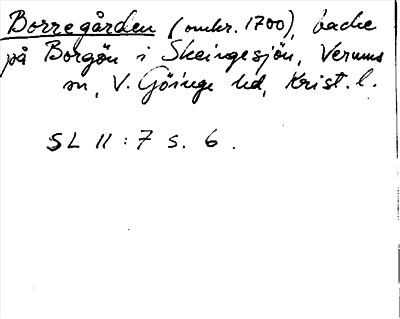 Borregården (omkr. 1700), backe
på Borgön i Skeingesjön, Verums
sn, V. Göinge hd, Krist. l.
SL II : 7 s. 6.